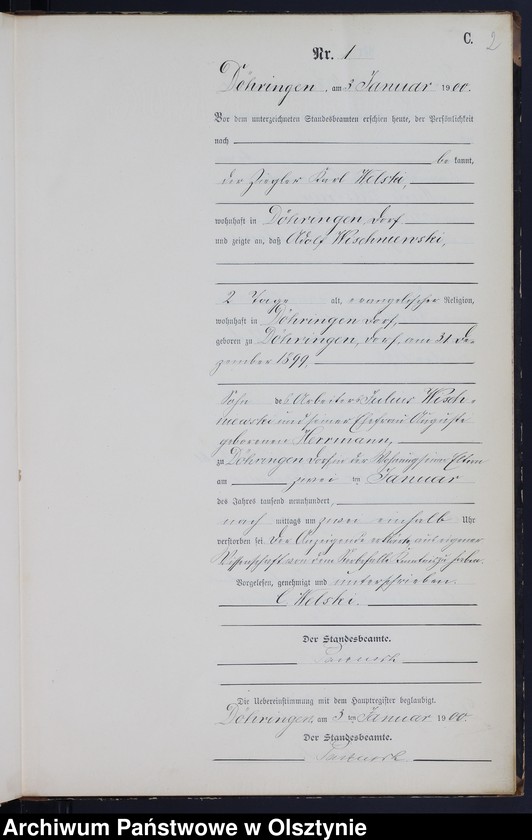 C. 2
Nr. 1
Döhringen, am 3 Januar 1900.
Vor dem unterzeichneten Standesbeamten erschien heute, der Persönlichkeit
nach
be kannt,
der Ziegler Karl Welski,
wohnhaft in Döhringen Dorf
und zeigte an, daß Adolf Wischniewski,
2 Tage alt, evangelischer Religion,
wohnhaft in Döhringen Dorf,
geboren zu Döhringen, Dorf, am 31 De-
zember 1899,
Sohn des Arbeiters Julius Wisch-
niewski und seiner Ehefrau Auguste
geborenen Herrmann,
zu Döhringen Dorf in der Wohnung seiner Eltern
am zwei ten Januar
des Jahres tausend neunhundert,
nach mittags um zwei einhalb Uhr
verstorben sei. Der Anzeigende erklärte, aus eigener
Wissenschaft von dem Sterbefalle Kenntniß zu haben.
Vorgelesen, genehmigt und unterschrieben.
C Welski.
Der Standesbeamte.
Die Uebereinstimmung mit dem Hauptregister beglaubigt.
Döhringen, am 3 ten Januar 1900.
Der Standesbeamte.
Archiwum Państwowe w Olsztynie